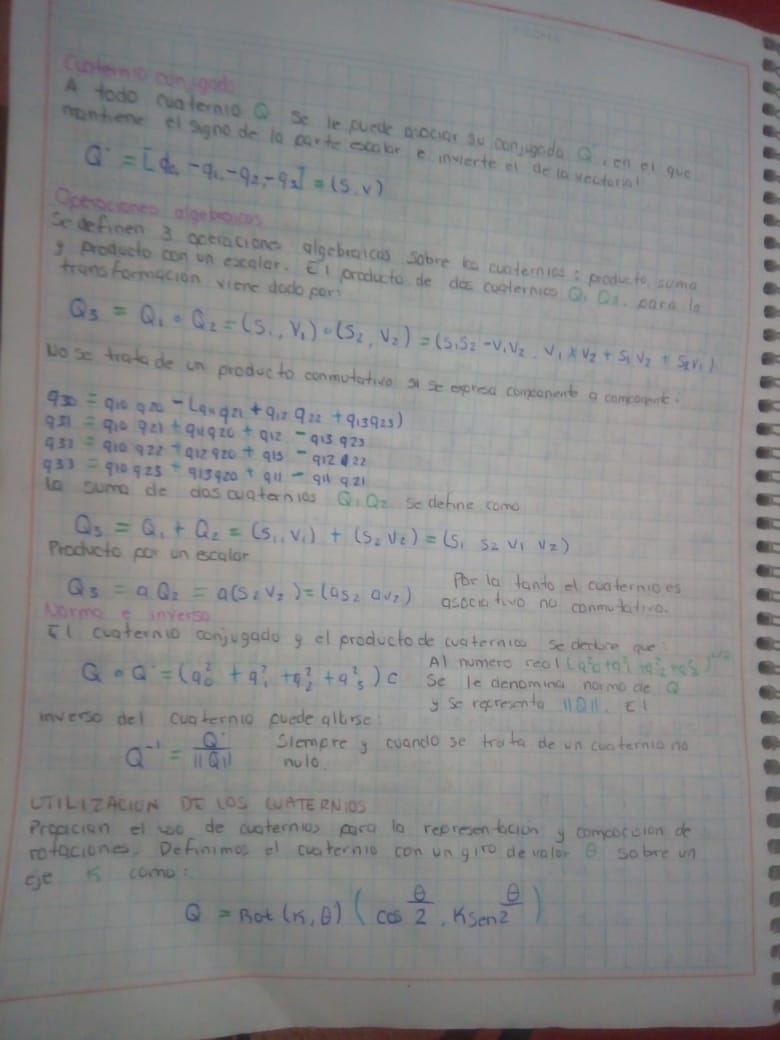 Cuaternio conjugado
A todo cuaternio Q se le puede asociar su conjugado Q˙, en el que
mantiene el signo de la parte escalar e invierte el de la vectorial
Q˙ = [q0, -q1, -q2, -q3] = (s, v)
Operaciones algebraicas
Se definen 3 operaciones algebraicas sobre los cuaternios: producto, suma
y producto con un escalar. El producto de dos cuaternios Q1 Q2, para la
transformación viene dado por:
Q3 = Q1 ∘ Q2 = (S1, V1) ∘ (S2, V2) = (S1S2 - V1V2, V1 x V2 + S1V2 + S2V1)
No se trata de un producto conmutativo si se expresa componente a componente:
q30 = q10 q20 - (q11 q21 + q12 q22 + q13q23)
q31 = q10 q21 + q11q20 + q12 - q13 q23
q32 = q10 q22 + q12q20 + q13 - q12 22
q33 = q10 q23 + q13q20 + q11 - q11 q21
la suma de dos cuaternios Q1 Q2 se define como
Q3 = Q1 + Q2 = (S1, V1) + (S2 V2) = (S1 S2 V1 V2)
Producto por un escalar
Q3 = a Q2 = a(S2 V2) = (aS2 aV2) Por la tanto el cuaternio es
asociativo no conmutativo.
Norma e inverso
El cuaternio conjugado y el producto de cuaternios se que:
Q ∘ Q˙ = (q0² + q1² + q2² + q3²) C Al numero real (q0² + q1² + q2² + q3²)1/2
Se le denomina norma de Q
y se representa ||Q||. El
inverso del cuaternio puede :
Q⁻¹ = Q˙ / ||Q|| Siempre y cuando se trata de un cuaternio no
nulo.
UTILIZACION DE LOS CUATERNIOS
Propician el uso de cuaternios para la representación y composicion de
rotaciones. Definimos el cuaternio con un giro de valor θ sobre un
eje K como:
Q = Rot (K, θ) (cos θ/2, K sen θ/2)